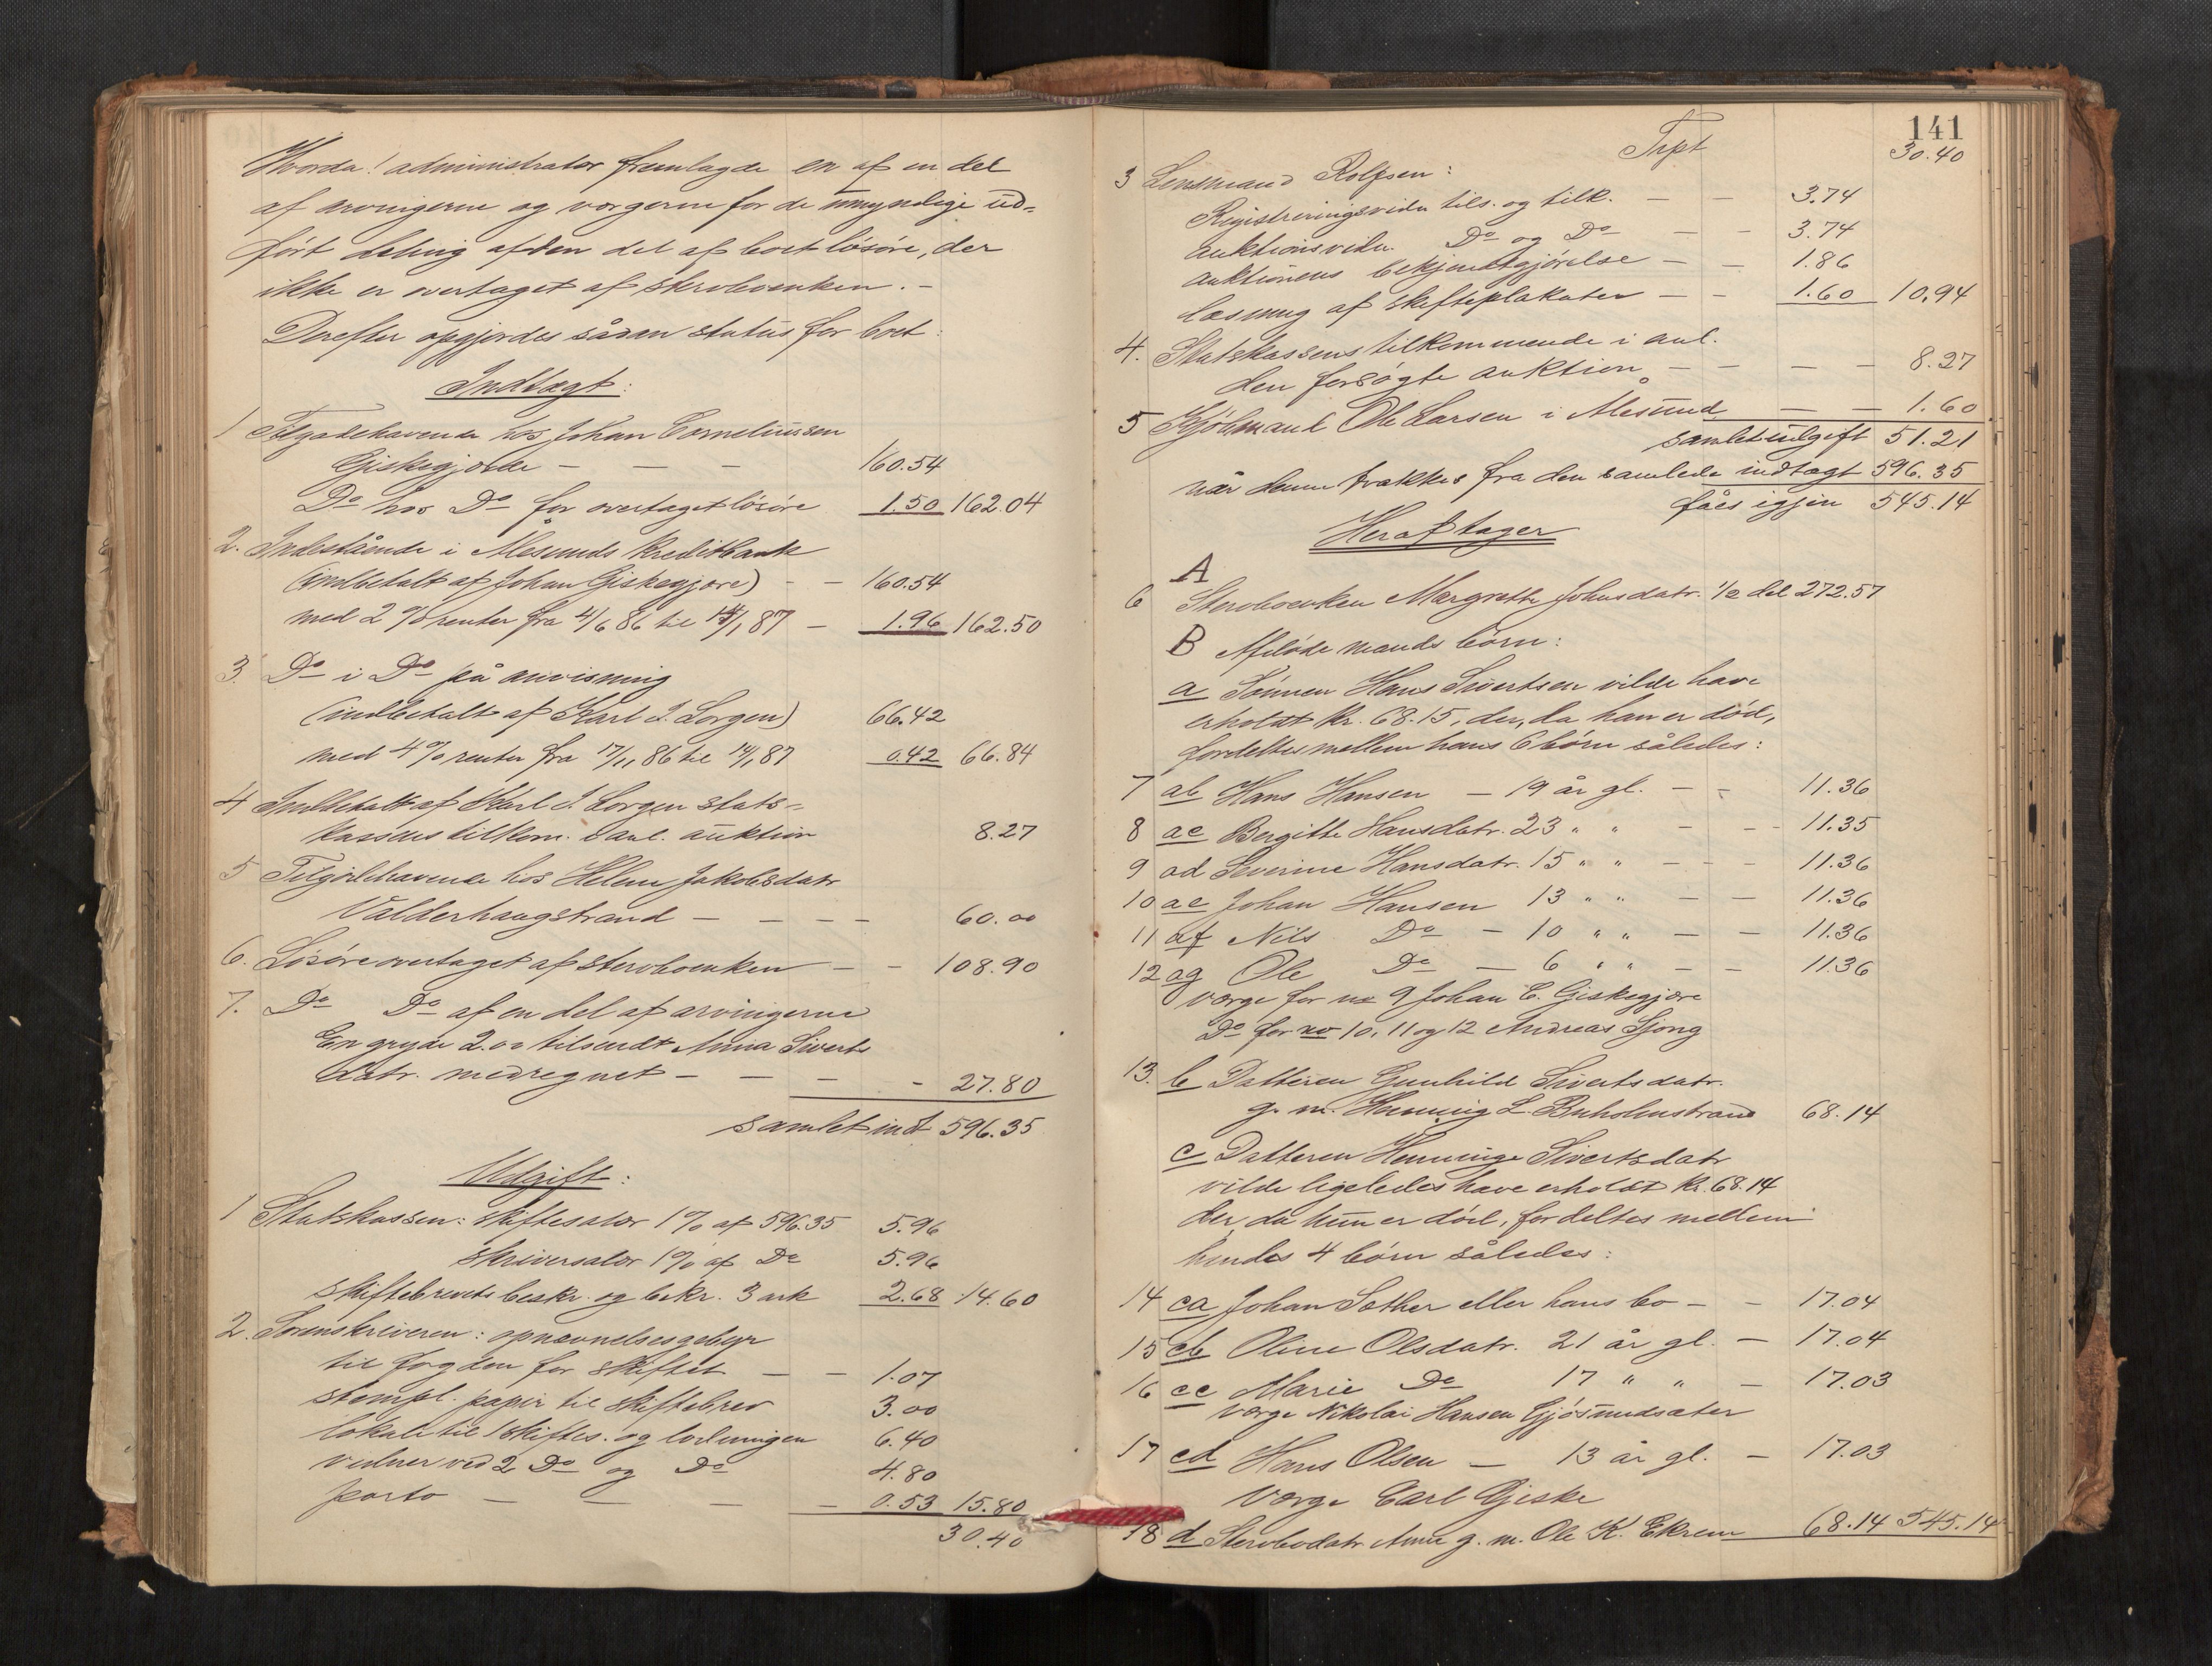 Hvorda! administrator fremlagde en af en del
af arvingerne og vergerne for de umyndige ud-
ført deling af den del af boets løsøre, der
ikke er overtaget af sterboenken. -
Derefter opgjordes sådan status for boet:
Indtægt:
1 Tilgodehavende hos Johan Corneliussen
Giskegjorde - - - 160.54
Do hos Do for overtaget løsøre 1.50 162.04
2. Indestående i Ålesunds Kreditbank
(indbetalt af Johan Giskegjøre) - - 160.54
med 2 % renter fra 4/6 86 til 14/1 87 - 1.96 162.50
3. Do i Do på anvisning
(indbetalt af Karl J. Lorgen) 66.42
med 4 % renter fra 17/11 86 til 14/1 87 0.42 66.84
4 Indbetalt af Karl J. Lorgen stats-
kassens tilkom. i anl. auktion 8.27
5 Tilgodehavende hos Helene Jakobsdatr
Valderhaugstrand - - - - 60.00
6. Løsøre overtaget af sterboenken - - 108.90
7. Do Do af en del af arvingerne
En gryde 2.00 tilsendt Anna Siverts
datr. medregnet - - - - 27.80
samlet indt 596.35
Udgift:
1 Statskassen: skiftesalær 1 % af 596.35 5.96
skriversalær 1 % af Do 5.96
skiftebrevets beskr. og bekr. 3 ark 2.68 14.60
2. Sorenskriveren: opnævnelsesgebyr
til fogden for skiftet - - 1.07
stempl. papir til skiftebrev 3.00
lokale til skiftes. og lodningen 6.40
vidner ved 2 Do og Do 4.80
porto - - - - 0.53 15.80
30.40
141
Trpt 30.40
3 Lensmand Rolfsen:
Registreringsvidn. tils. og tilk. - - 3.74
auktionsvidn. Do og Do - - 3.74
auktionens bekjendtgjørelse - - 1.86
læsning af skifteplakater - - 1.60 10.94
4. Statskassens tilkommende i anl.
den forsøgte auktion - - - - 8.27
5 Kjøbmand Ole Larsen i Ålesund - - 1.60
samlet udgift 51.21
når denne trækkes fra den samlede indtægt 596.35
fåes igjen 545.14
Heraf tager
A
6 Sterboenken Margrethe Johnsdatr. 1/2 del 272.57
B Afdøde mands børn:
a Sønnen Hans Sivertsen vilde have
erholdt kr. 68.15, der, da han er død,
fordeltes mellem hans 6 børn således:
7 ab Hans Hansen - 19 år gl. - - 11.36
8 ac Bergitte Hansdatr. 23 " " - - 11.35
9 ad Severine Hansdatr. 15 " " - - - 11.36
10 ae Johan Hansen 13 " " - - 11.36
11 af Nils Do - 10 " " - - 11.36
12 ag Ole Do - 6 " " - - 11.36
Værge for no 9 Johan C. Giskegjøre
Do for no 10, 11 og 12 Andreas Sjong
13. b Datteren Gunhild Sivertsdatr.
g. m. Henning L. 68.14
c Datteren Henninge Sivertsdatr
vilde ligeledes have erholdt kr. 68.14
der, da hun er død, fordeltes mellem
hendes 4 børn således:
14 ca Johan Sæther eller hans bo - - 17.04
15 cb Oline Olsdatr. 21 år gl. - 17.04
16 cc Marie Do 17 " " - 17.03
Værge Nikolai Hansen Gjøsundsæter
17 cd Hans Olsen - 13 år gl. - 17.03
Værge Carl Gjeske
18 d Sterbodatr Anne g. m. Ole K. Ekrem 68.14 545.14